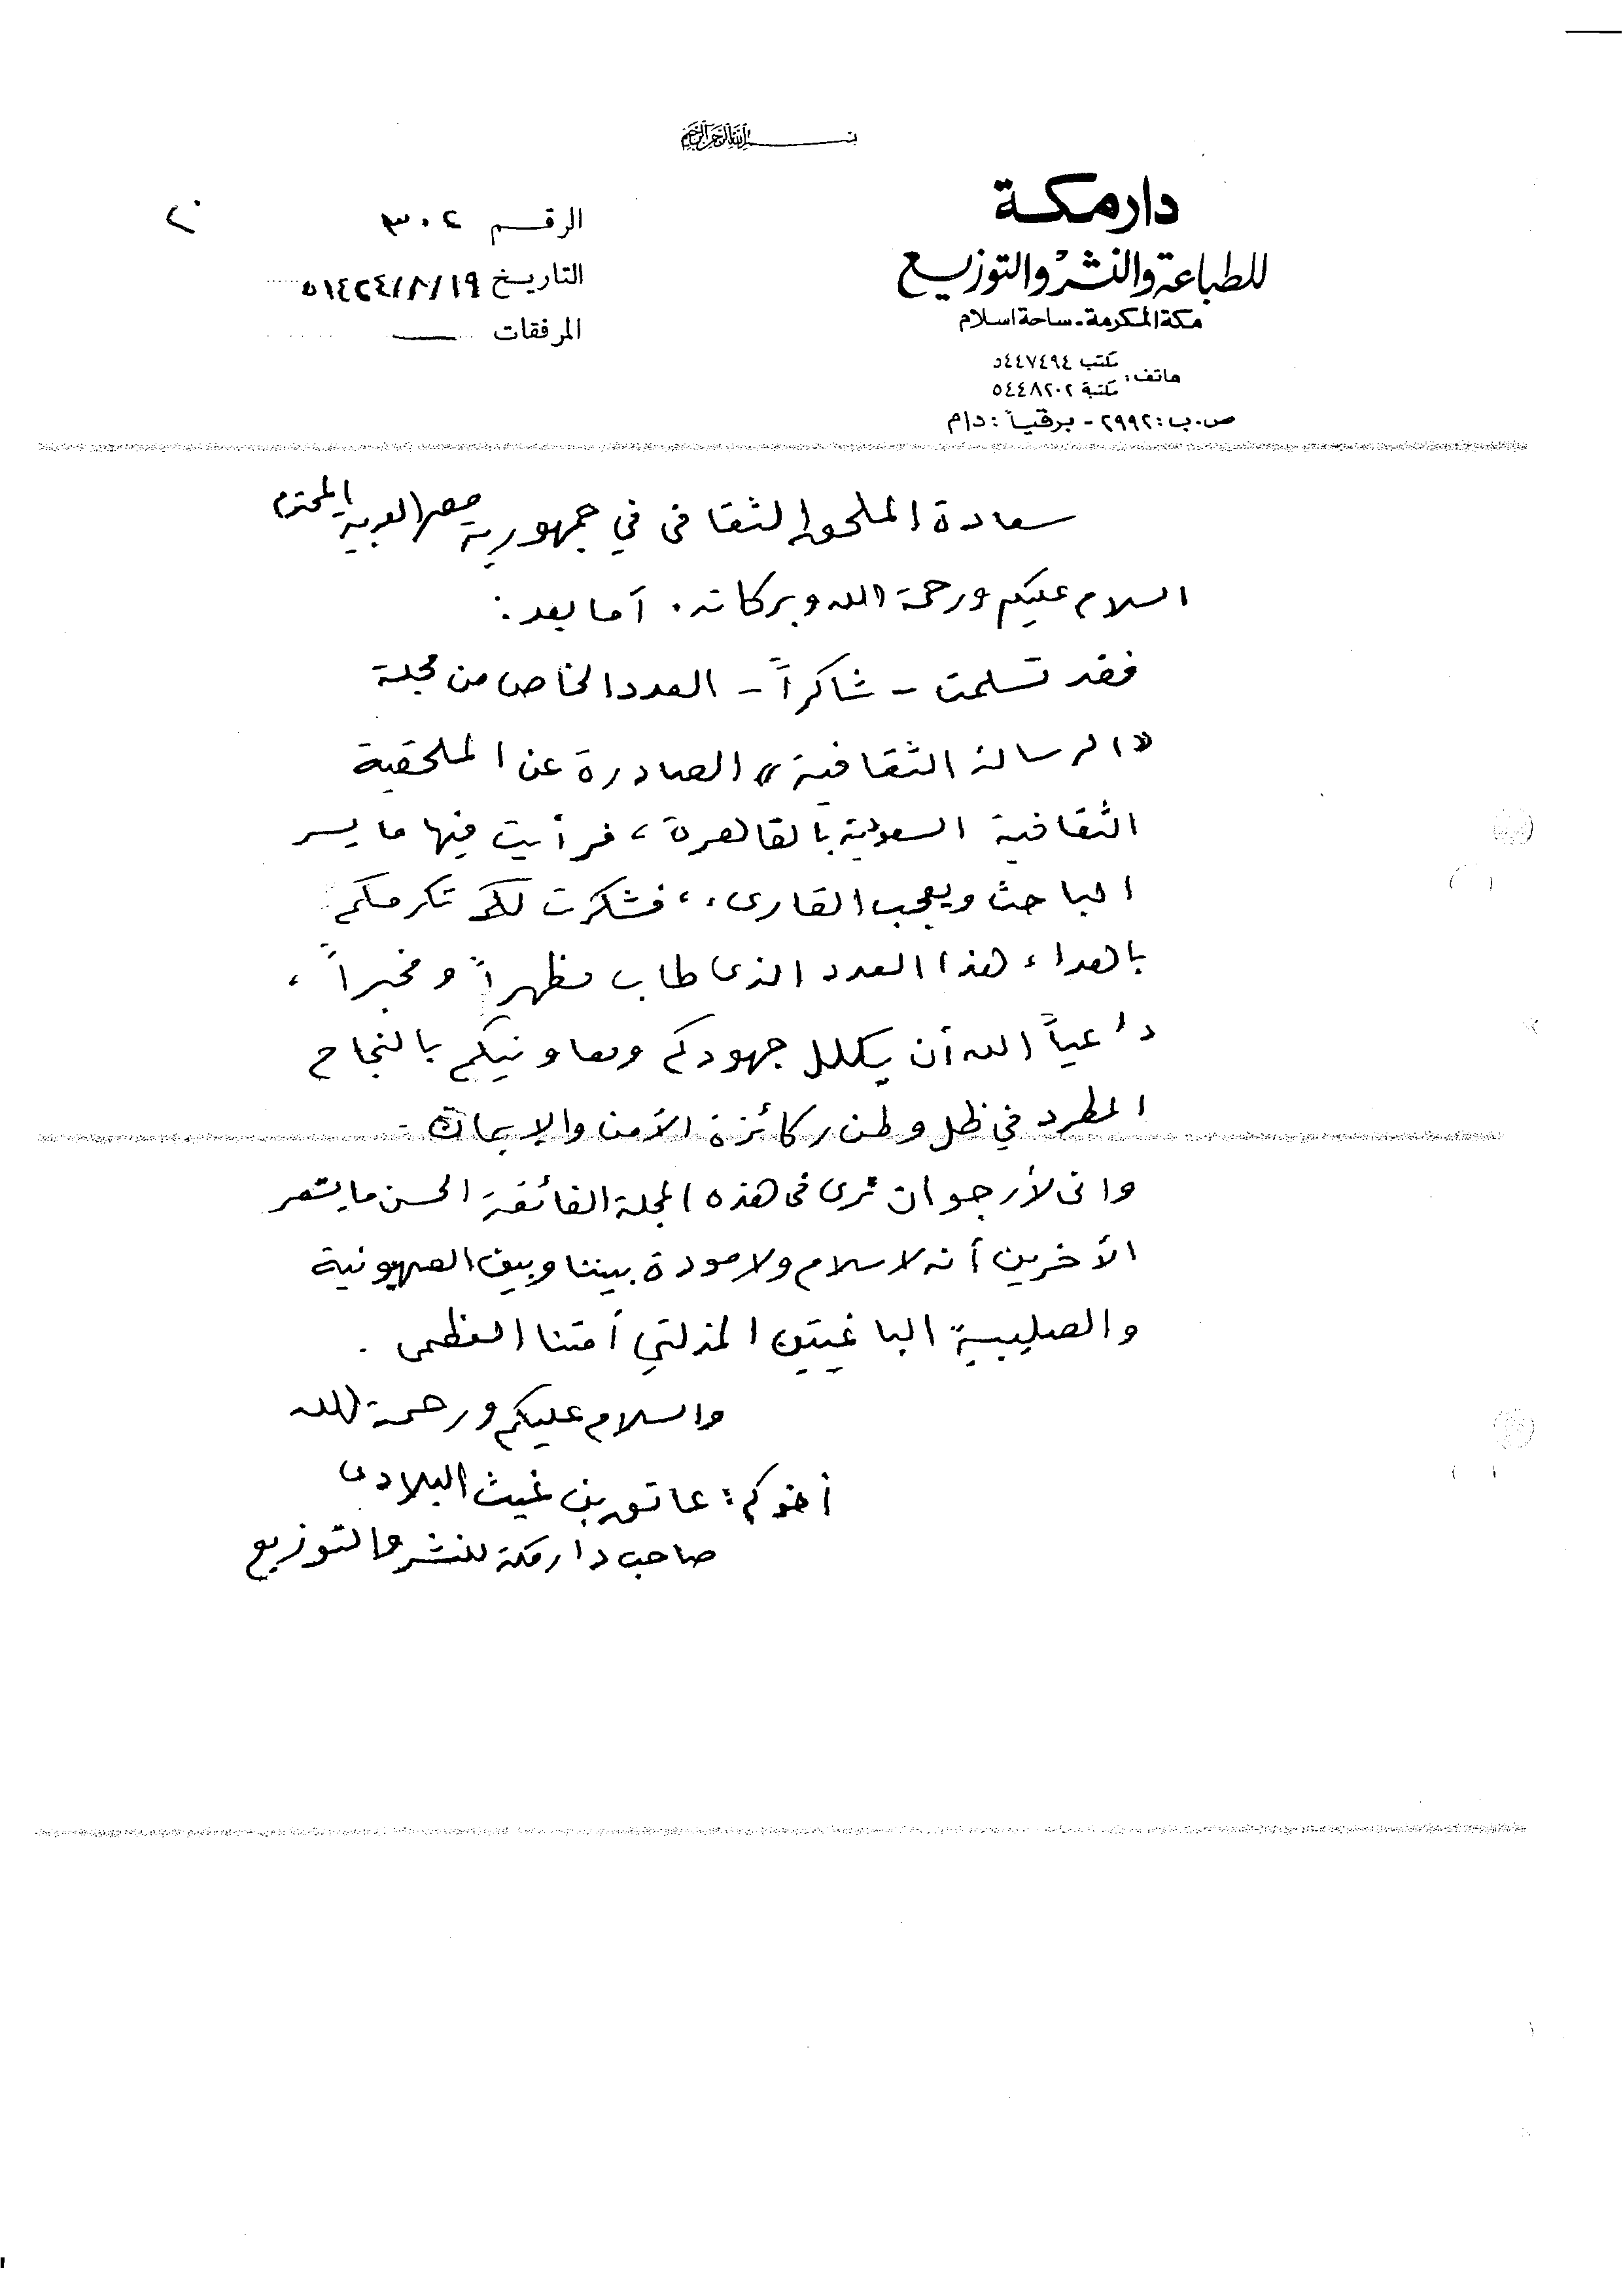 بسم الله الرحمن الرحيم
دار مكة
للطباعة والنشر والتوزيع
مكة المكرمة - ساحة اسلام
هاتف: مكتب ٥٤٤٧٤٩٤
مكتبة ٥٤٤٨٢٠٢
ص.ب: ٢٩٩٢ - برقياً: دام
الرقم ٣٠٤
التاريخ ١٤٢٤/٨/١٩ه
المرفقات ــ
سعادة الملحق الثقافى في جمهورية مصر العربية المحترم
السلام عليكم ورحمة الله وبركاته. أما بعد:
فقد تسلمت - شاكراً - العدد الخاص من مجلة
«الرسالة الثقافية» الصادرة عن الملحقية
الثقافية السعودية بالقاهرة، فرأيت فيها ما يسر
الباحث ويعجب القارىء، فشكرت لكم تكرمكم
باهداء هذا العدد الذى طاب مظهراً ومخبراً،
داعياً الله أن يكلل جهودكم ومعاونيكم بالنجاح
المطرد في ظل وطن ركائزة الأمن والإيمان.
وانى لأرجو ان نرى فى هذه المجلة الفائقة الحسن ما يشعر
الآخرين أنه لا سلام ولا مودة بيننا وبين الصهيونية
والصليبية الباغيتين المذلتي أمتنا العظمى.
والسلام عليكم ورحمة الله
أخوكم: عاتق بن غيث البلادى
صاحب دار مكة للنشر والتوزيع